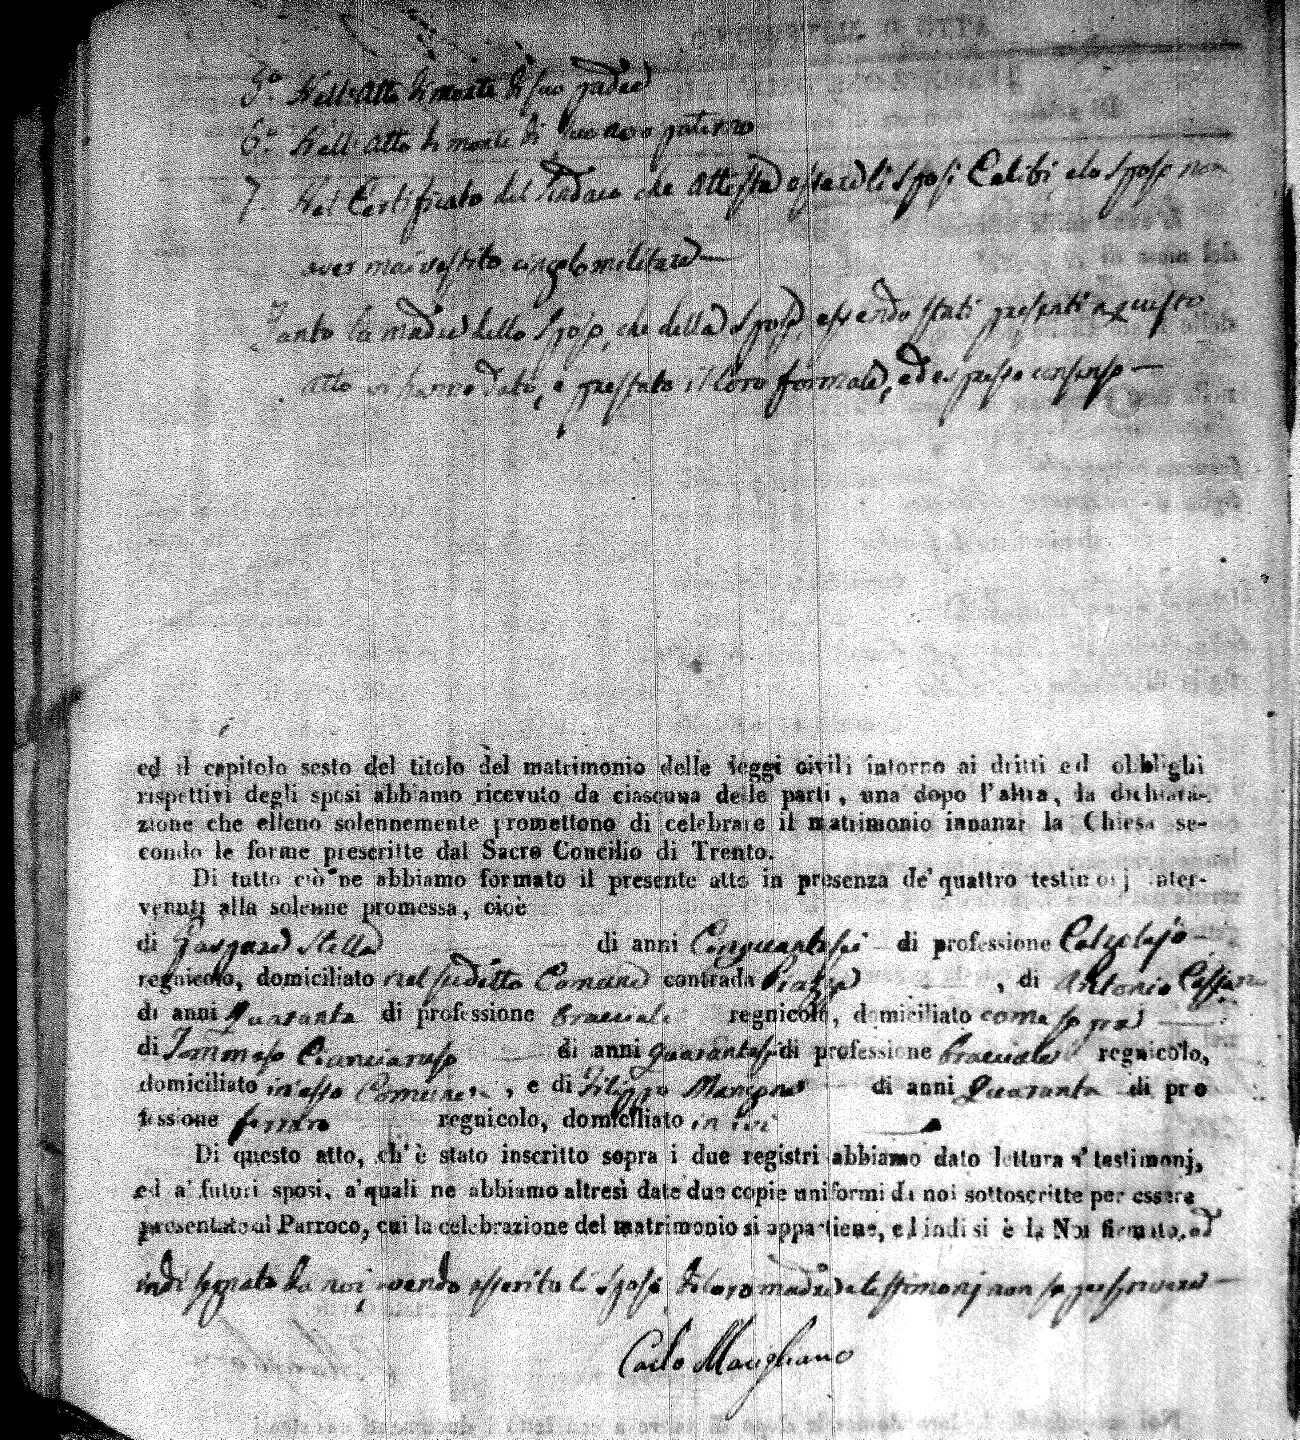 5.° Nell'atto di morte di suo padre
6.° Nell'atto di morte di suo avo paterno
7 Nel Certificato del Sindaco che attesta essere li sposi Celibi e lo sposo non
aver mai vestito cingolo militare —
Tanto la madre dello sposo, che della sposa, essendo stati presenti a questo
atto vi hanno dato, e prestato il loro formale, ed espresso consenso —
ed il capitolo sesto del titolo del matrimonio delle leggi civili intorno ai dritti ed obblighi
rispettivi degli sposi abbiamo ricevuto da ciascuna delle parti, una dopo l'altra, la dichiara-
zione che elleno solennemente promettono di celebrare il matrimonio innanzi la Chiesa se-
condo le forme prescritte dal Sacro Concilio di Trento.
Di tutto ciò ne abbiamo formato il presente atto in presenza de' quattro testimonj inter-
venuti alla solenne promessa, cioè
di Gaspare Stella di anni Cinquantasei di professione Calzolajo
regnicolo, domiciliato nel suddetto Comune contrada Piazza, di Antonio
di anni Quaranta di professione bracciale regnicolo, domiciliato come sopra
di Tommaso Cianciaruso di anni quarantasei di professione bracciale regnicolo,
domiciliato in esso Comune, e di Filippo Mangone di anni Quaranta di pro
fessione ferraro regnicolo, domiciliato in ivi
Di questo atto, ch'è stato inscritto sopra i due registri abbiamo dato lettura a' testimonj,
ed a' futuri sposi, a' quali ne abbiamo altresì date due copie uniformi da noi sottoscritte per essere
presentate al Parroco, cui la celebrazione del matrimonio si appartiene, ed indi si è da Noi firmato, ed
indi segnato da noi, avendo asserito li sposi di loro madre e testimonj non saper scrivere —
Carlo Marigliano